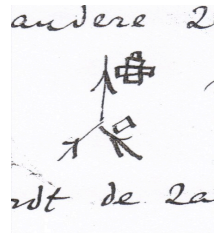 andere 2
rdt de 2a